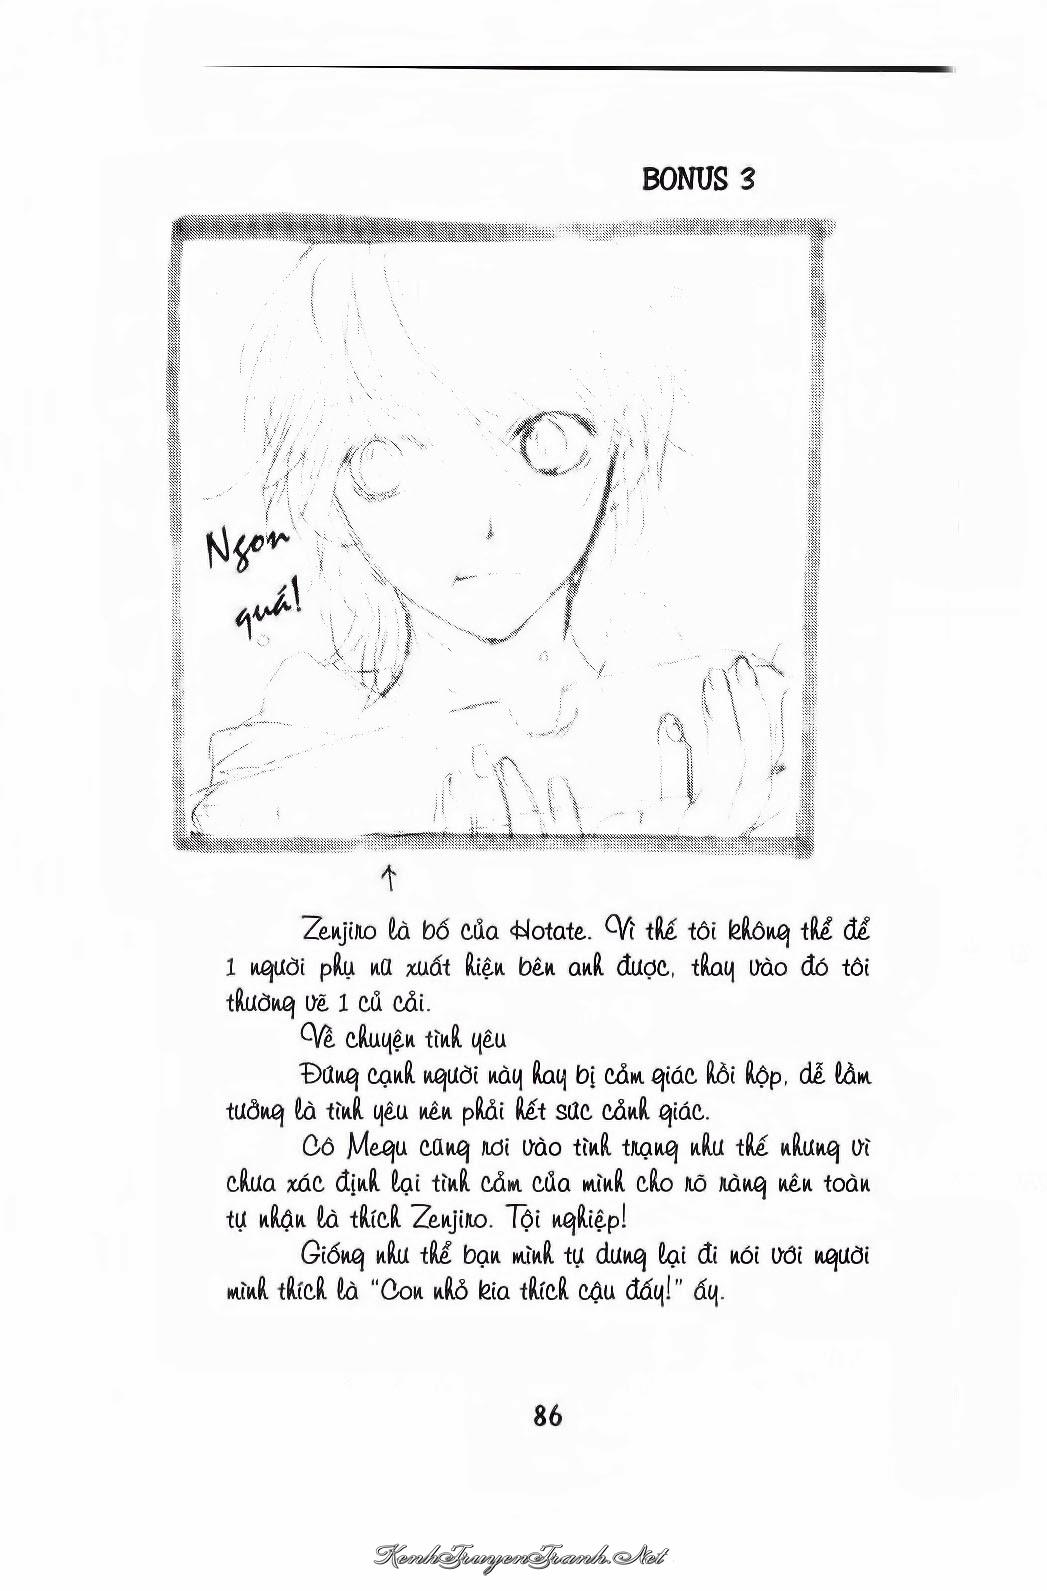 BONUS 3
Ngon
quá!
Zenjiro là bố của Hotate. Vì thế tôi không thể để
1 người phụ nữ xuất hiện bên anh được, thay vào đó tôi
thường vẽ 1 củ cải.
Về chuyện tình yêu
Đứng cạnh người này hay bị cảm giác hồi hộp, dễ lầm
tưởng là tình yêu nên phải hết sức cảnh giác.
Cô Megu cũng rơi vào tình trạng như thế nhưng vì
chưa xác định lại tình cảm của mình cho rõ ràng nên toàn
tự nhận là thích Zenjiro. Tội nghiệp!
Giống như thể bạn mình tự dưng lại đi nói với người
mình thích là "Con nhỏ kia thích cậu đấy!" ấy.
86
KenhTruyenTranh.Net